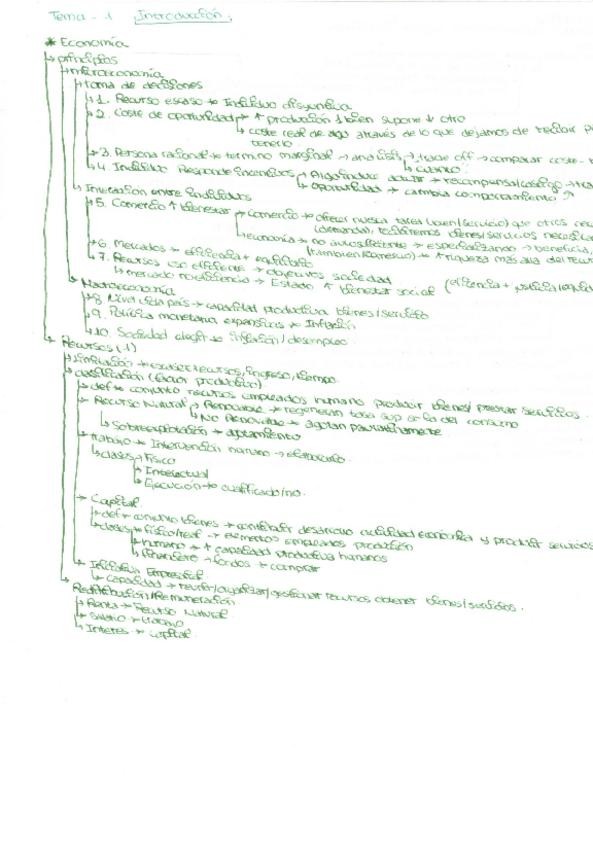 Tema - 1 Introducción.
* Economía
↳ principios
↳ microeconomía
↳ toma de decisiones
↳ 1. Recurso escaso → Individuo disyuntiva
↳ 2. Coste de oportunidad → ↑ producción 1 bien supone ↓ otro
↳ coste real de algo a través de lo que dejamos de recibir
tenerlo
↳ 3. Persona racional → termino marginal → analisis → trade off → comparar coste -
↳ cuanto?
↳ 4. Individuo Responde incentivos → Algo induce actuar → recompensa/castigo →
↳ oportunidad → cambia comportamiento
↳ Interacción entre individuos
↳ 5. Comercio ↑ bienestar → comercio → ofrecer nuestra tarea (bien/servicio) que otros
(demanda), recibiremos bienes/servicios
↳ economía → no autosuficiente → especializando → beneficia
(también Regresivo) → ↑ riqueza más allá del
↳ 6. Mercados → eficiencia + equilibrio
↳ 7. Recursos uso eficiente → objetivos sociedad
↳ mercado no eficiencia → Estado ↑ bienestar social (eficiencia +
↳ Macroeconomía
↳ 8. Nivel vida país → capacidad productiva bienes/servicio
↳ 9. Política monetaria expansivas → Inflación
↳ 10. Sociedad elegir → inflación/desempleo
↳ Recursos (1)
↳ limitación → escasez recursos, ingreso, tiempo.
↳ clasificación (factor productivo)
↳ def → conjunto recursos empleados humano producir bienes/prestar servicios.
↳ Recurso Natural → Renovable → regeneran tasa sup a la del consumo
↳ No Renovable → agotan paulatinamente
↳ Sobreexplotación → agotamiento
↳ trabajo → Intervención humano → elaborado.
↳ clases → Físico
↳ Intelectual
↳ Ejecución → cualificado/no.
↳ Capital.
↳ def → conjunto bienes → contribuir desarrollo actividad económica y producir servicios
↳ clases → físico/real → elementos empleados producción
↳ humano → ↑ capacidad productiva humanos
↳ financiero → fondos → comprar
↳ Iniciativa Empresarial
↳ capacidad → reunir/organizar/gestionar recursos obtener bienes/servicios.
↳ Retribución/Remuneración.
↳ Renta → Recurso Natural.
↳ Salario → trabajo
↳ Interes → capital.